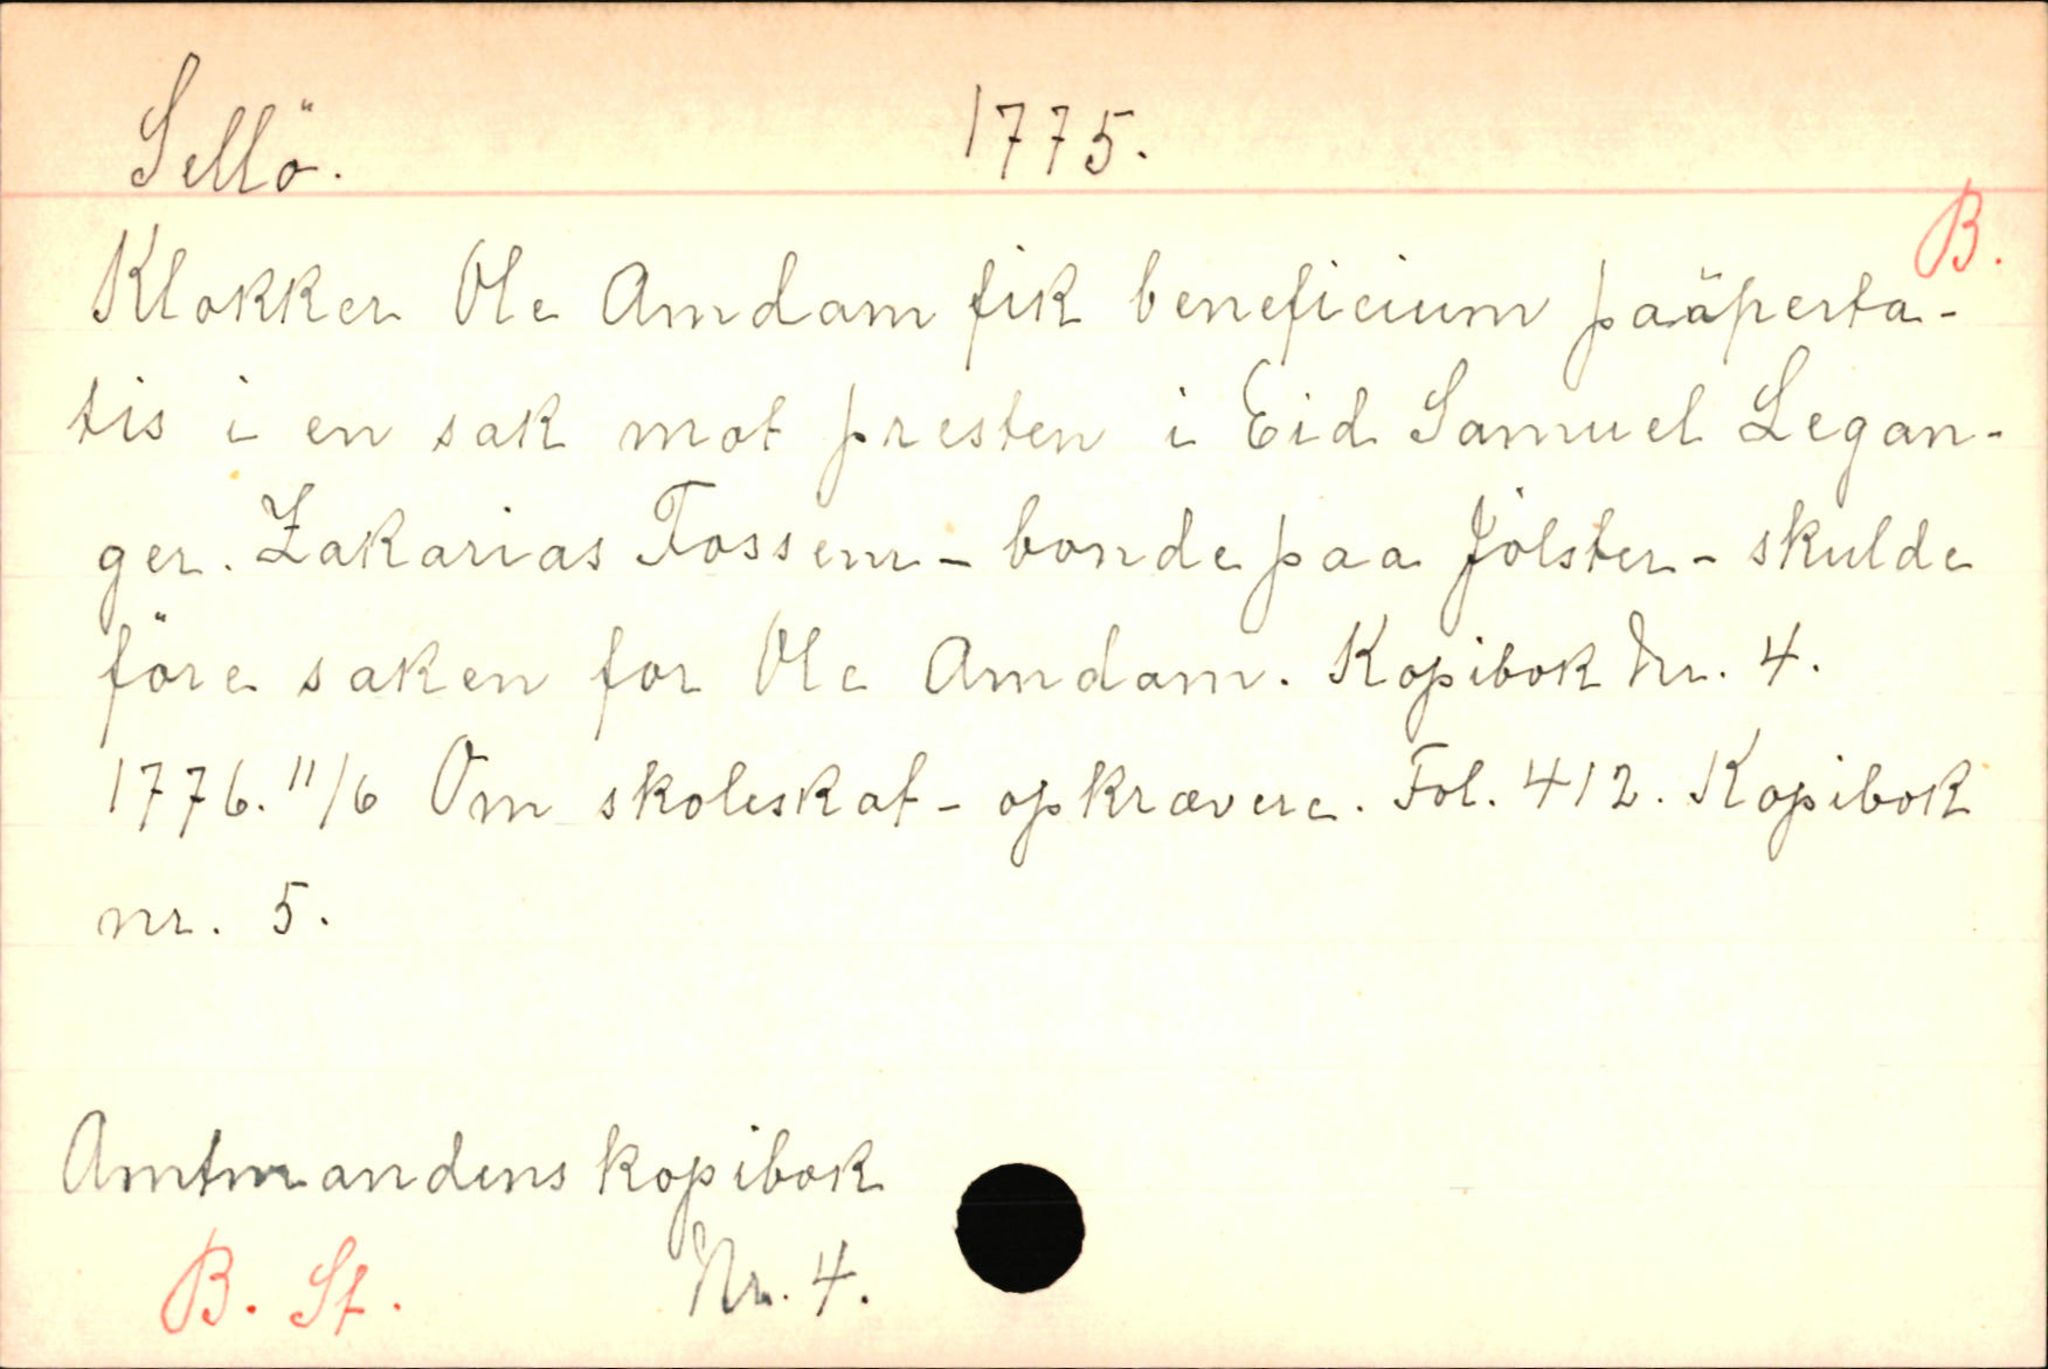 Sellö. 1775.
B.
Klokker Ole Amdam fik beneficium paäperta-
tis i en sak mot presten i Eid Samuel Legan-
ger. Zakarias Fossem - bonde paa Jölster - skulde
före saken for Ole Amdam. Kopibok Nr. 4.
1776. 11/6 Om skoleskat - opkrævere. Fol. 412. Kopibok
nr. 5.
Amtmandens kopibok
B. St. Nr. 4.